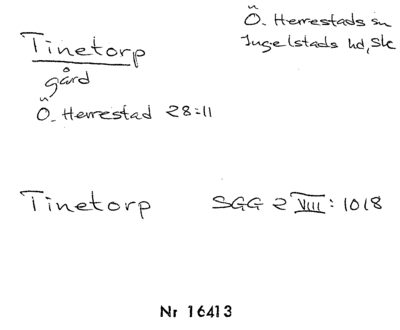 Tinetorp
gård
Ö. Herrestad 28:11
Ö. Herrestads sn
Ingelstads hd, Sk
Tinetorp SGG 2 VIII: 1018
Nr 16413